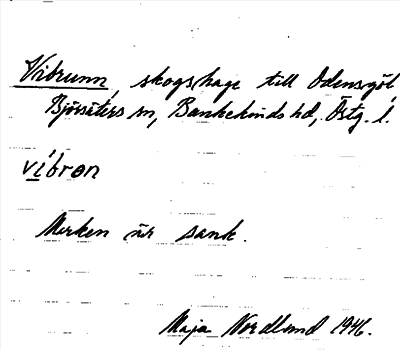 Vibrunn, skogshage till Odensgöl
Björsäters sn, Bankekinds hd, Östg. l.
víbrøn
Marken är sank.
Maja Nordlund 1946.